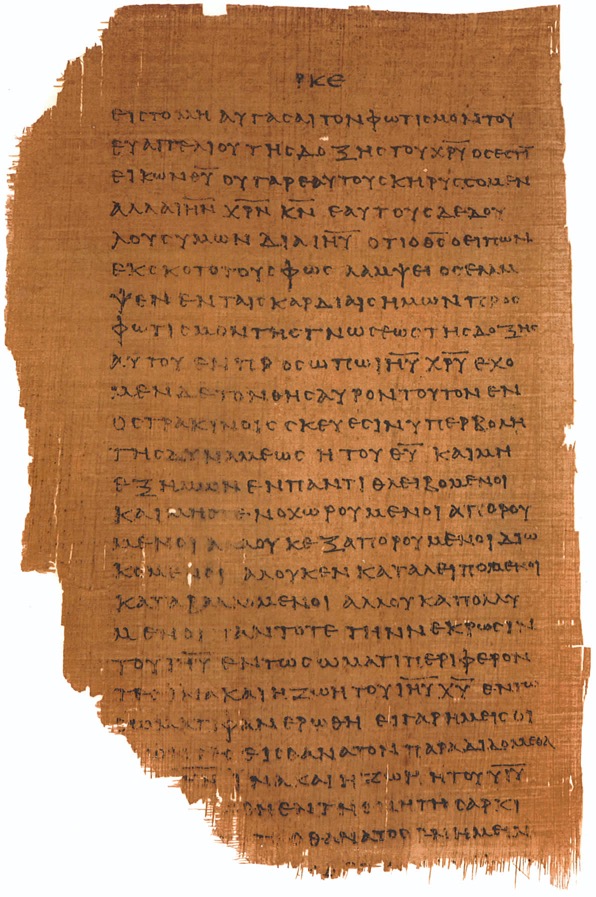 ΡΚΕ
ΕΙΣΤΟΜΗ ΑΥΓΑΣΑΙ ΤΟΝ ΦΩΤΙΣΜΟΝ ΤΟΥ
ΕΥΑΓΓΕΛΙΟΥ ΤΗΣ ΔΟΞΗΣ ΤΟΥ Χ̅Ρ̅Υ̅ ΟΣ ΕΣΤΙ̅
ΕΙΚΩΝ Θ̅Υ̅ ΟΥ ΓΑΡ ΕΑΥΤΟΥΣ ΚΗΡΥΣΣΟΜΕΝ
ΑΛΛΑ Ι̅Η̅Ν̅ Χ̅Ρ̅Ν̅ Κ̅Ν̅ ΕΑΥΤΟΥΣ ΔΕ ΔΟΥ
ΛΟΥΣ ΥΜΩΝ ΔΙΑ Ι̅Η̅Υ̅ ΟΤΙ Ο Θ̅Σ̅ Ο ΕΙΠΩΝ
ΕΚ ΣΚΟΤΟΥΣ ΦΩΣ ΛΑΜΨΕΙ ΟΣ ΕΛΑΜ
ΨΕΝ ΕΝ ΤΑΙΣ ΚΑΡΔΙΑΙΣ ΗΜΩΝ ΠΡΟΣ
ΦΩΤΙΣΜΟΝ ΤΗΣ ΓΝΩΣΕΩΣ ΤΗΣ ΔΟΞΗΣ
ΑΥΤΟΥ ΕΝ ΠΡΟΣΩΠΩ Ι̅Η̅Υ̅ Χ̅Ρ̅Υ̅ ΕΧΟ
ΜΕΝ ΔΕ ΤΟΝ ΘΗΣΑΥΡΟΝ ΤΟΥΤΟΝ ΕΝ
ΟΣΤΡΑΚΙΝΟΙΣ ΣΚΕΥΕΣΙΝ Υ ΠΕΡΒΟΛΗ
ΤΗΣ ΔΥΝΑΜΕΩΣ Η ΤΟΥ Θ̅Υ̅ ΚΑΙ ΜΗ
ΕΞ ΗΜΩΝ ΕΝ ΠΑΝΤΙ ΘΛΕΙΒΟΜΕΝΟΙ
ΚΑΙ ΜΗ ΣΤΕΝΟΧΩΡΟΥΜΕΝΟΙ ΑΠΟΡΟΥ
ΜΕΝΟΙ ΑΛΛ ΟΥΚ ΕΞΑΠΟΡΟΥΜΕΝΟΙ ΔΙΩ
ΚΟΜΕΝΟΙ ΑΛΛ ΟΥΚ ΕΝΚΑΤΑΛΕΙΠΟΜΕΝΟΙ
ΚΑΤΑΒΑΛΛΟΜΕΝΟΙ ΑΛΛ ΟΥΚ ΑΠΟΛΛΥ
ΜΕΝΟΙ ΠΑΝΤΟΤΕ ΤΗΝ ΝΕΚΡΩΣΙΝ
ΤΟΥ Ι̅Η̅Υ̅ ΕΝ ΤΩ ΣΩΜΑΤΙ ΠΕΡΙΦΕΡΟΝ
ΤΕΣ ΙΝΑ ΚΑΙ Η ΖΩΗ ΤΟΥ Ι̅Η̅Υ̅ Χ̅Υ̅ ΕΝ ΤΩ
ΣΩΜΑΤΙ ΦΑΝΕΡΩΘΗ ΕΙ ΓΑΡ ΗΜΕΙΣ ΟΙ
ΕΙΣ ΘΑΝΑΤΟΝ ΠΑΡΑΔΙΔΟΜΕΘΑ
Ι̅Η̅Ν̅ ΙΝΑ ΚΑΙ Η ΖΩΗ Η ΤΟΥ Ι̅Η̅Υ̅
ΤΗ ΣΑΡΚΙ
Ο ΘΑΝΑΤΟΣ ΕΝ ΗΜΕΙΝ